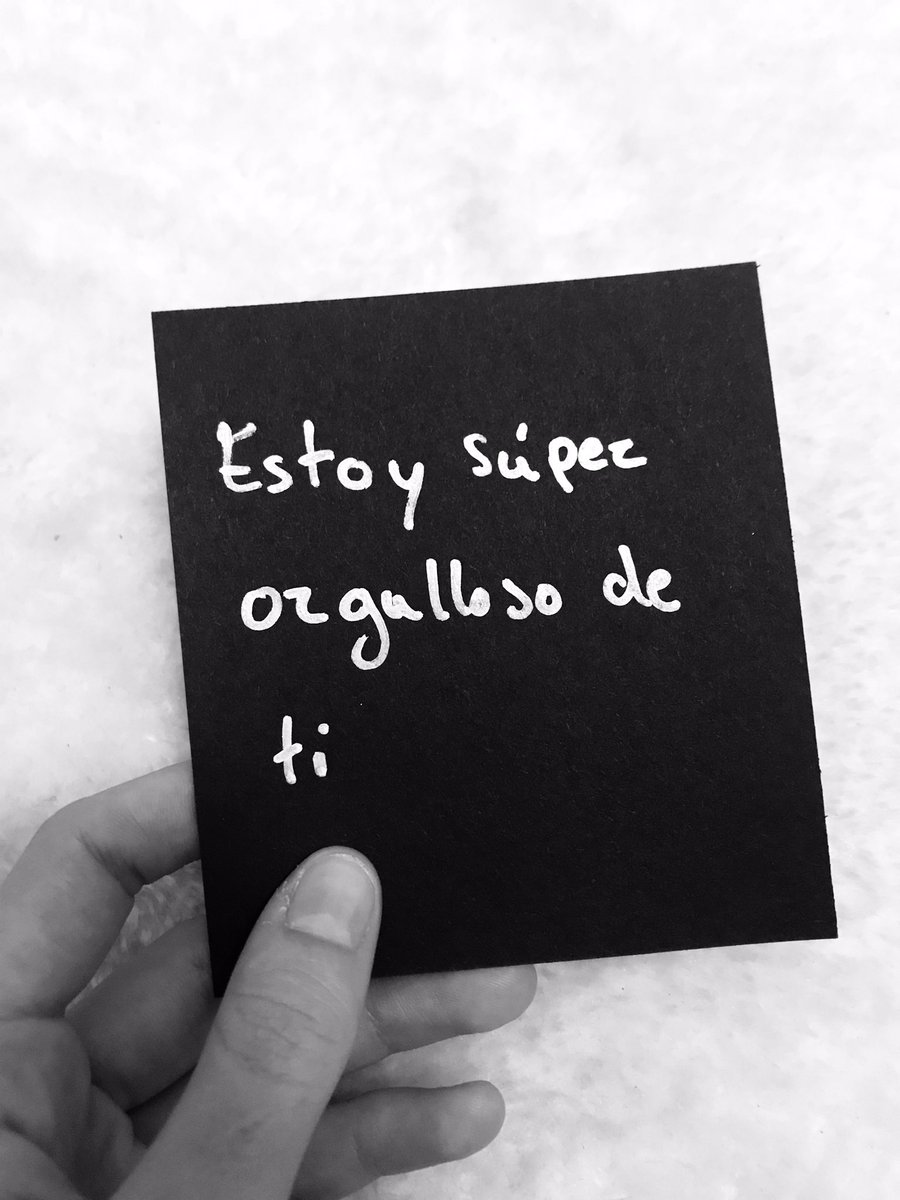 Estoy súper
orgulloso de
ti